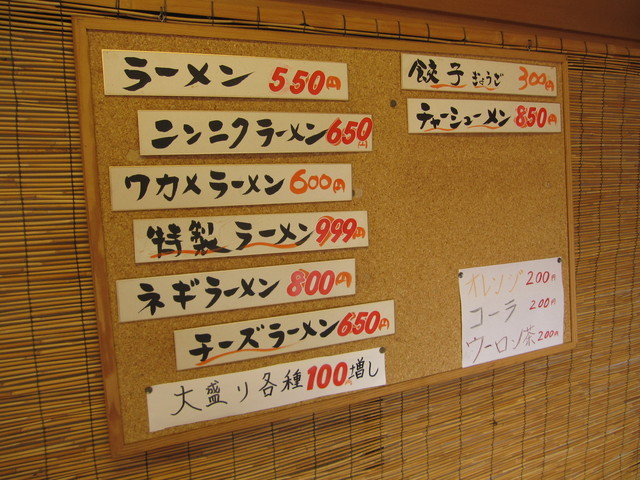 ラーメン 550円
ニンニクラーメン 650円
ワカメラーメン 600円
特製ラーメン 999円
ネギラーメン 800円
チーズラーメン 650円
大盛り各種100円増し
餃子 ぎょうざ 300円
チャーシューメン 850円
オレンジ 200円
コーラ 200円
ウーロン茶 200円